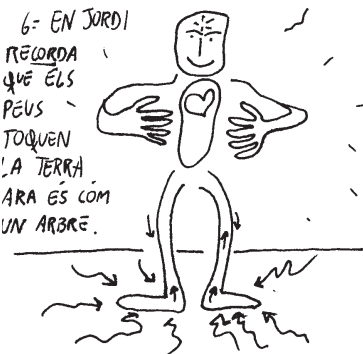 6= EN JORDI
RECORDA
QUE ELS
PEUS
TOQUEN
LA TERRA
ARA ÉS COM
UN ARBRE.